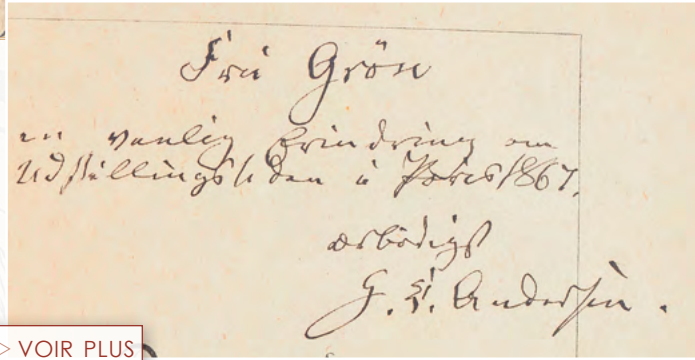 Fru Grön
en venlig Erindring om
Udstillingstiden i Paris 1867.
ærbödigst
H. C. Andersen.
> VOIR PLUS